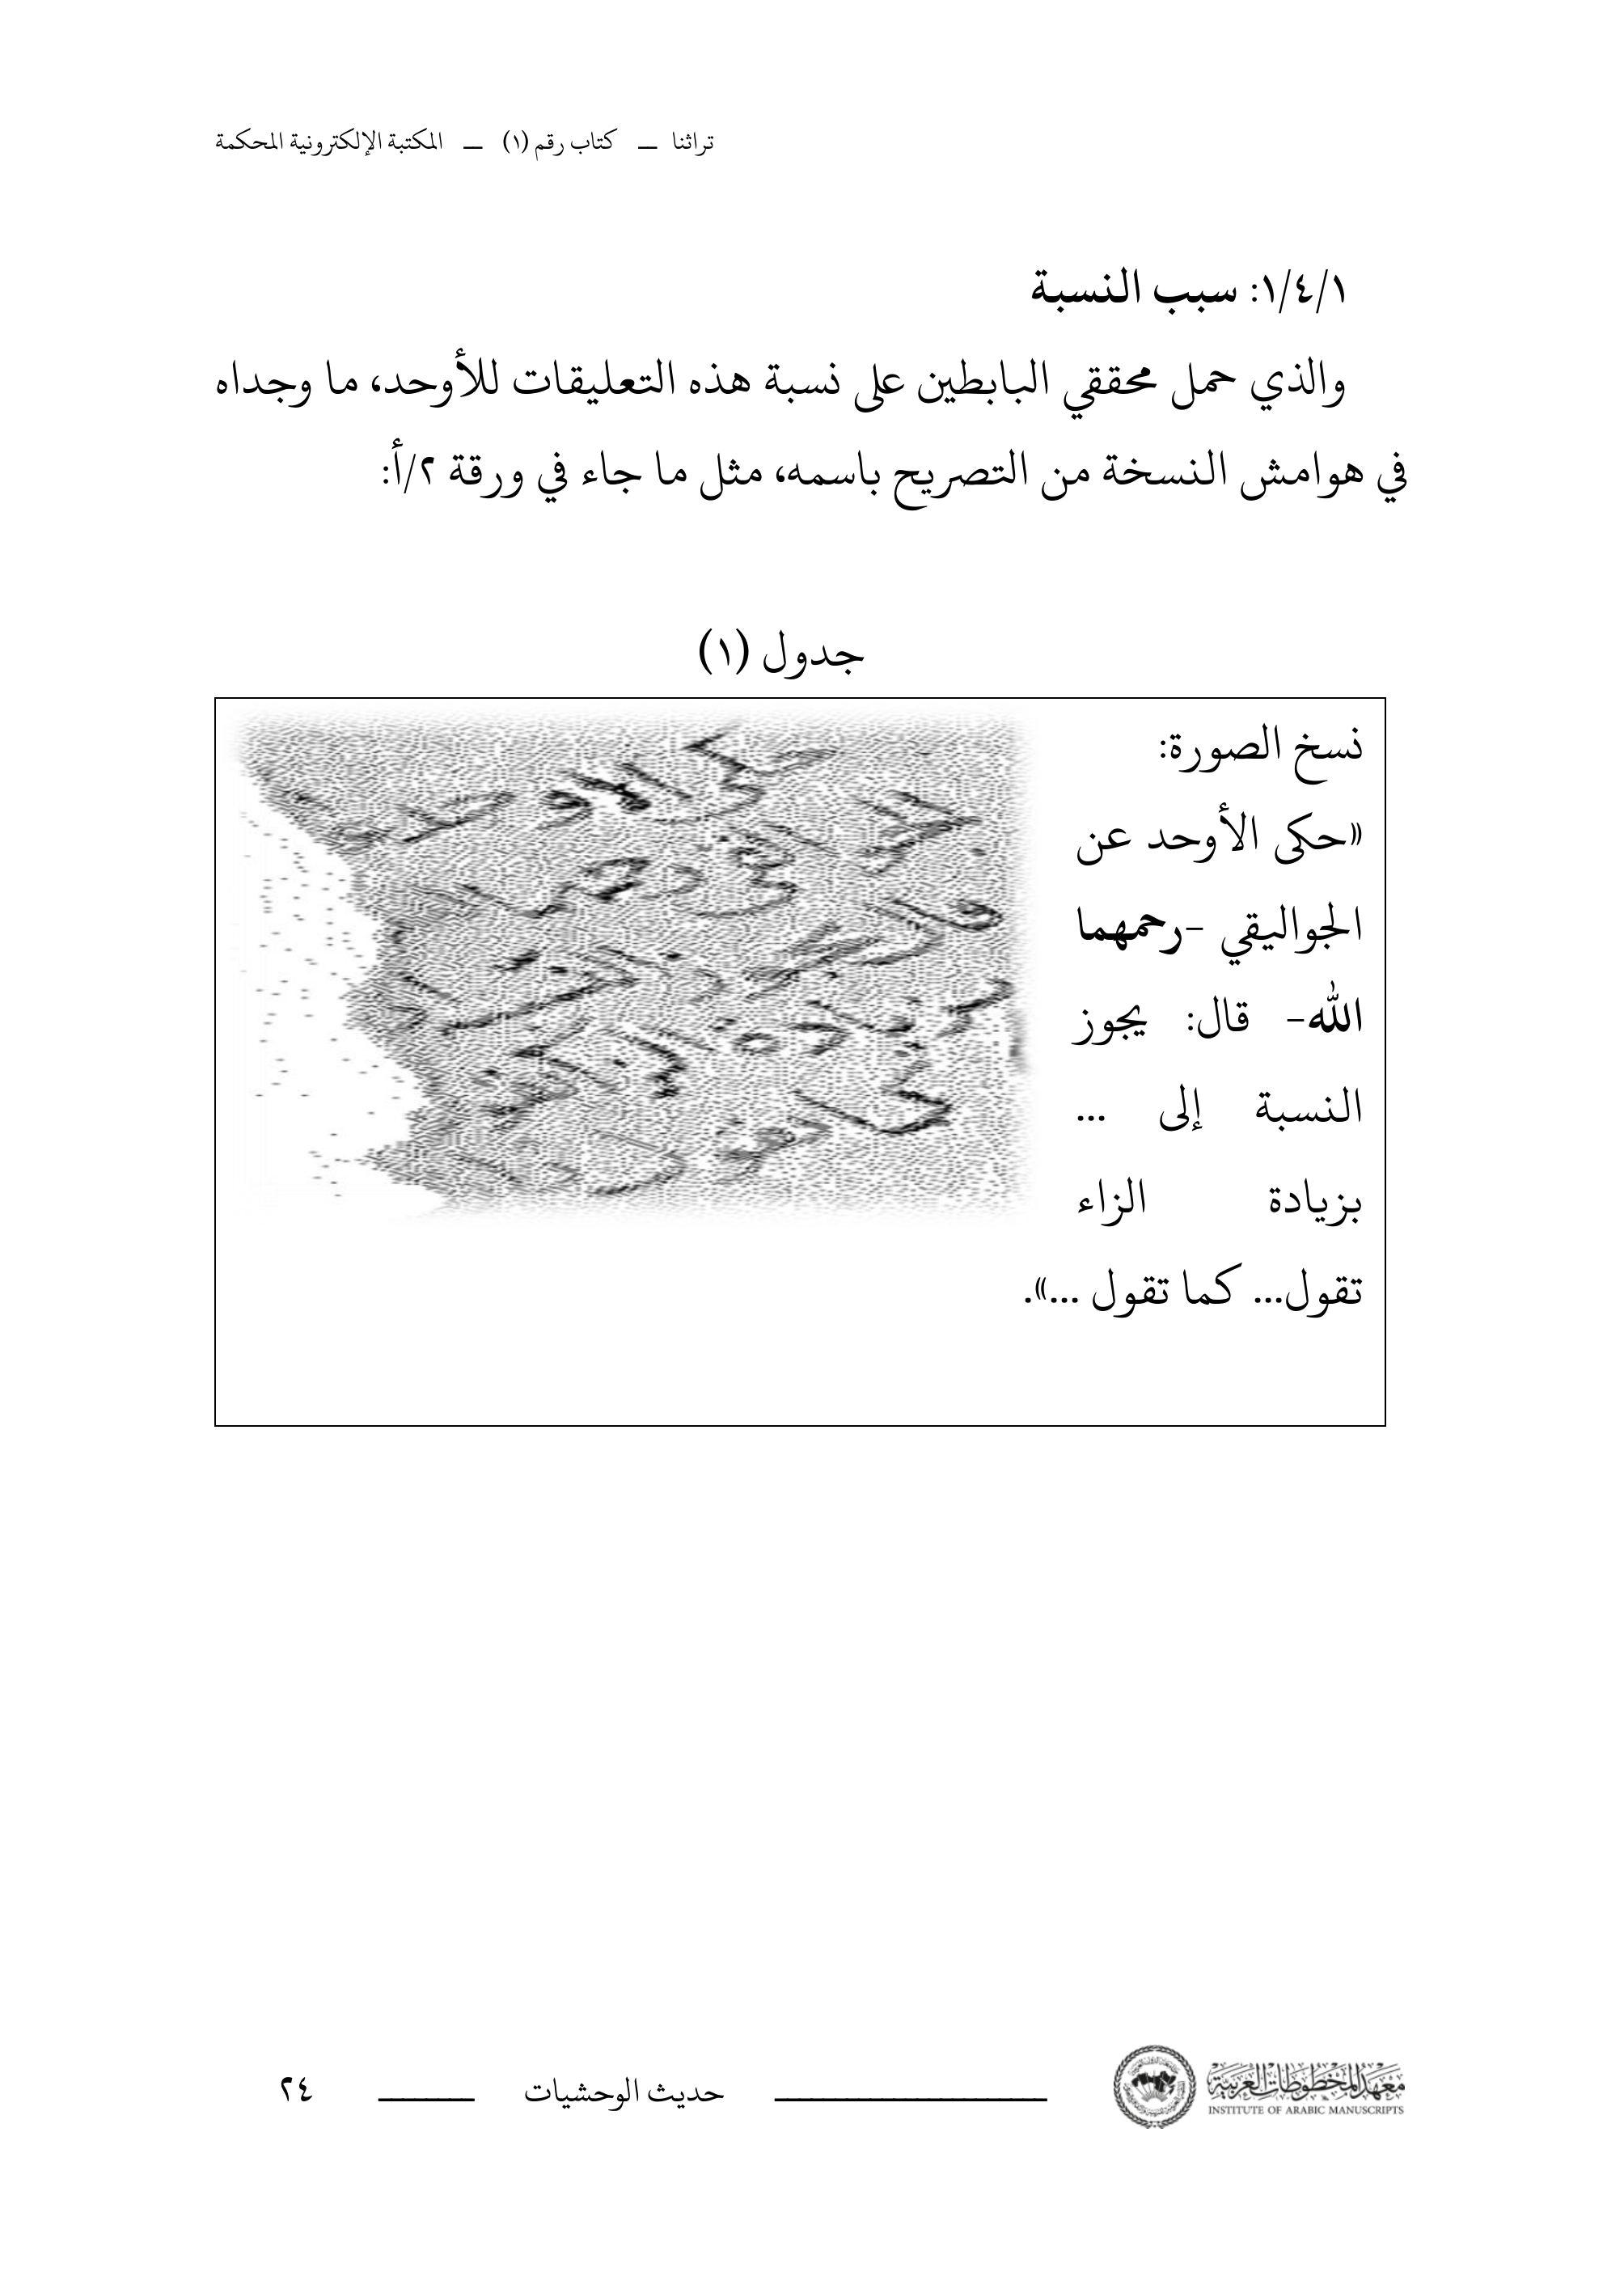 تراثنا ـــ كتاب رقم (١) ـــ المكتبة الإلكترونية المحكمة
١/٤/١: سبب النسبة
والذي حمل محققي البابطين على نسبة هذه التعليقات للأوحد، ما وجداه
في هوامش النسخة من التصريح باسمه، مثل ما جاء في ورقة ٢/أ:
جدول (١)
نسخ الصورة:
«حكى الأوحد عن
الجواليقي -رحمهما
الله- قال: يجوز
النسبة إلى ...
بزيادة الزاء
تقول... كما تقول ...».
معهد المخطوطات العربية
INSTITUTE OF ARABIC MANUSCRIPTS
حديث الوحشيات
٢٤